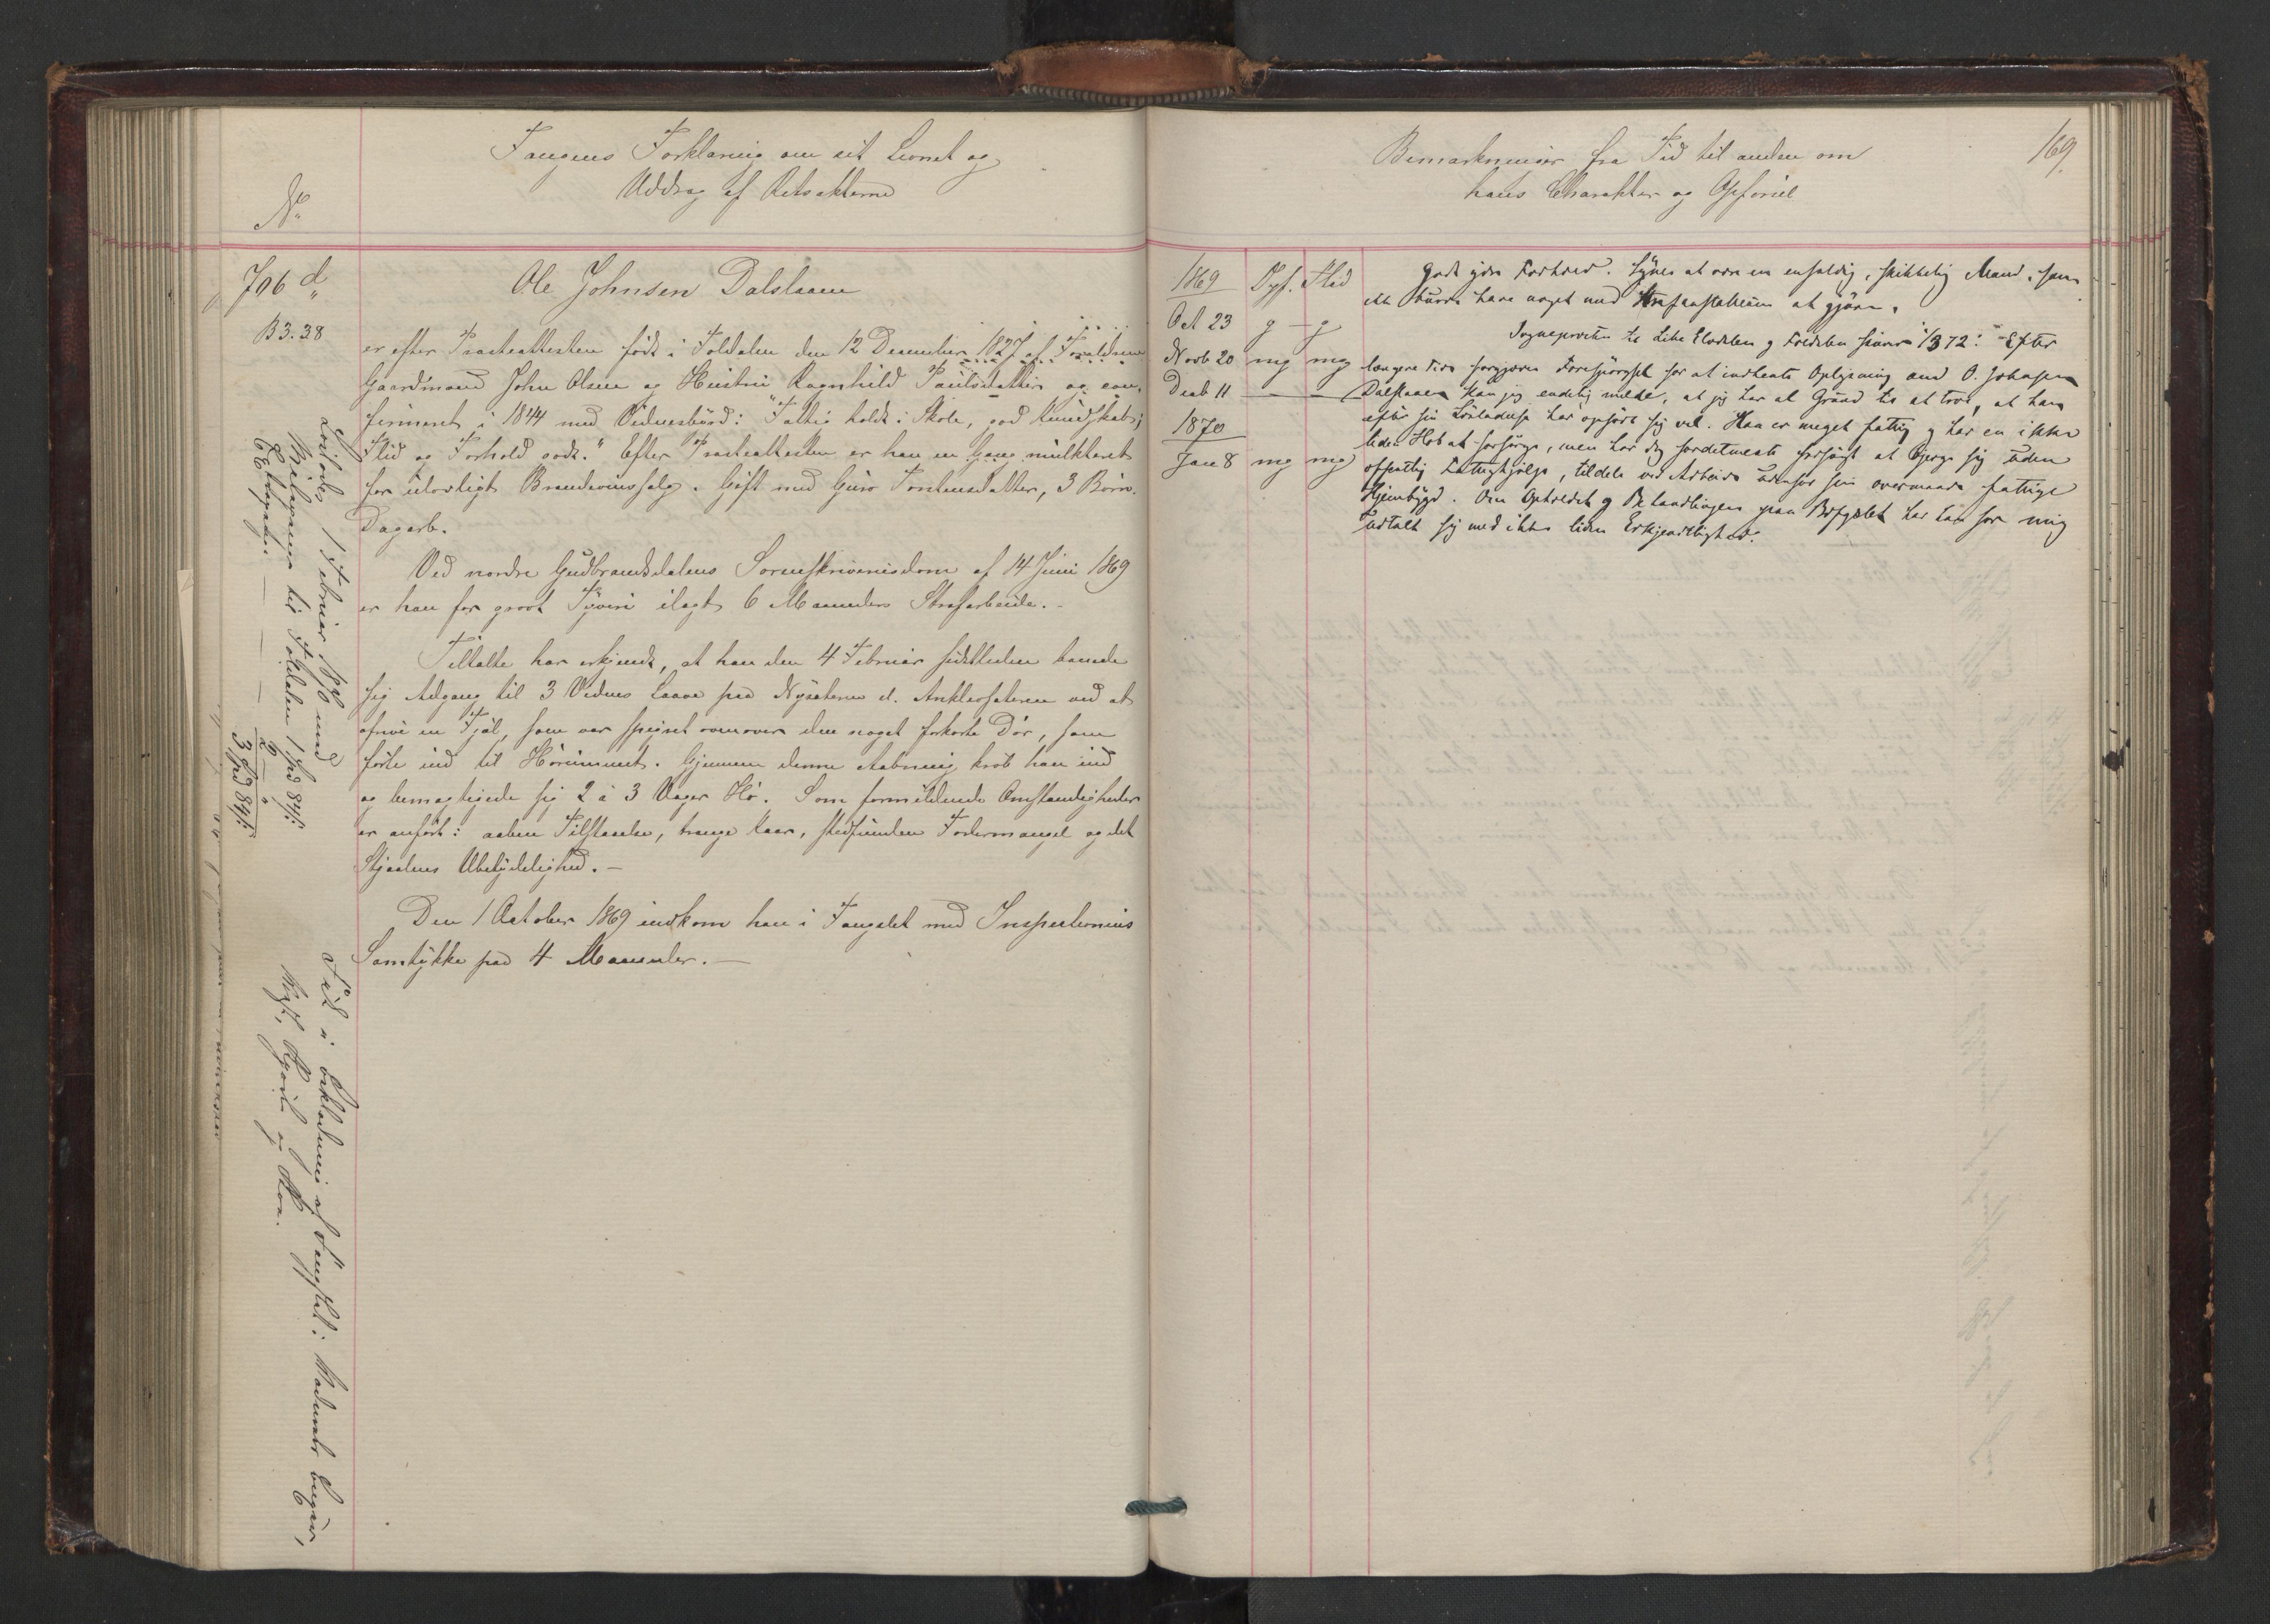 Fangens Forklaring om sit Levnet og
Uddrag af Retsakterne
No
706 d
B 3. 38
Ole Johnsen Dalslaaen
er efter Præsteattesten født i Foldalen den 12 December 1827 af Forældrene
Gaardmand John Olsen og Hustru Ragnhild Paulsdatter og con-
firmeret i 1844 med Vidnesbyrd: "Flittig holdt i Skole, god Kundskab;
Flid og Forhold godt." Efter Præsteattesten er han en Gang mulkteret
for ulovligt Brændevinssalg. Gift med Guro Torstensdatter, 3 Børn.
Dagarb.
Ved nordre Gudbrandsdalens Sorenskriverisdom af 14 Juni 1869
er han for grovt Tyveri ilagt 6 Maaneders Strafarbeide. -
Tiltalte har erkjendt, at han den 4 Februar sidstleden banede
sig Adgang til 3 Vidners Laave paa Nysæteren ved at
afrive en Fjøl, som var spigret ovenover den noget forkorte Dør, som
førte ind til Hørummet. Gjennem denne Aabning krøb han ind
og bemægtigede sig 2 à 3 Voger Hø. Som formildende Omstændigheder
er anført: aaben Tilstaaelse, trange Kaar, stedfunden Fodermangel og det
Stjaalnes Ubetydelighed. -
Den 1 October 1869 indkom han i Fængslet med Inspectionens
Samtykke paa 4 Maaneder. -
Løslodes 1 Februar 1870 med
Reisepenge til Foldalen 1 Spd 84 s
2 "
3 Spd 84 s
Fik i Beklædning af Fængslet: Vadmels Buxer,
Vest, Skjorte og Sko.
Bemærkninger fra Tid til anden om
hans Charakter og Opførsel
169.
1869 Opf. Flid
Oct 23 g - g
Novb 20 mg mg
Decb 11 — —
1870
Jan 8 mg mg
Godt ydre Forhold. Synes at være en enfoldig, skikkelig Mand, som
ikke burde have noget med Strafanstalterne at gjøre.
Sognepræsten til Lille Elvedalen og Foldalen skriver 1/3 72: "Efter
længere Tids forgjæves Forespørgsel for at indhente Oplysning om O. Johnsen
Dalslaaen kan jeg endelig melde, at jeg har al Grund til at tro, at han
efter sin Løsladelse har opført sig vel. Han er meget fattig og har en ikke
liden Flok at forsørge, men har dog fordetmeste forsøgt at bjerge sig uden
offentlig Fattighjælp, tildels ved Arbeide udenfor sin overmaade fattige
Hjembygd. Om Opholdet og Behandlingen paa Bodsfængslet har han for mig
udtalt sig med ikke liden Erkjendtlighed."